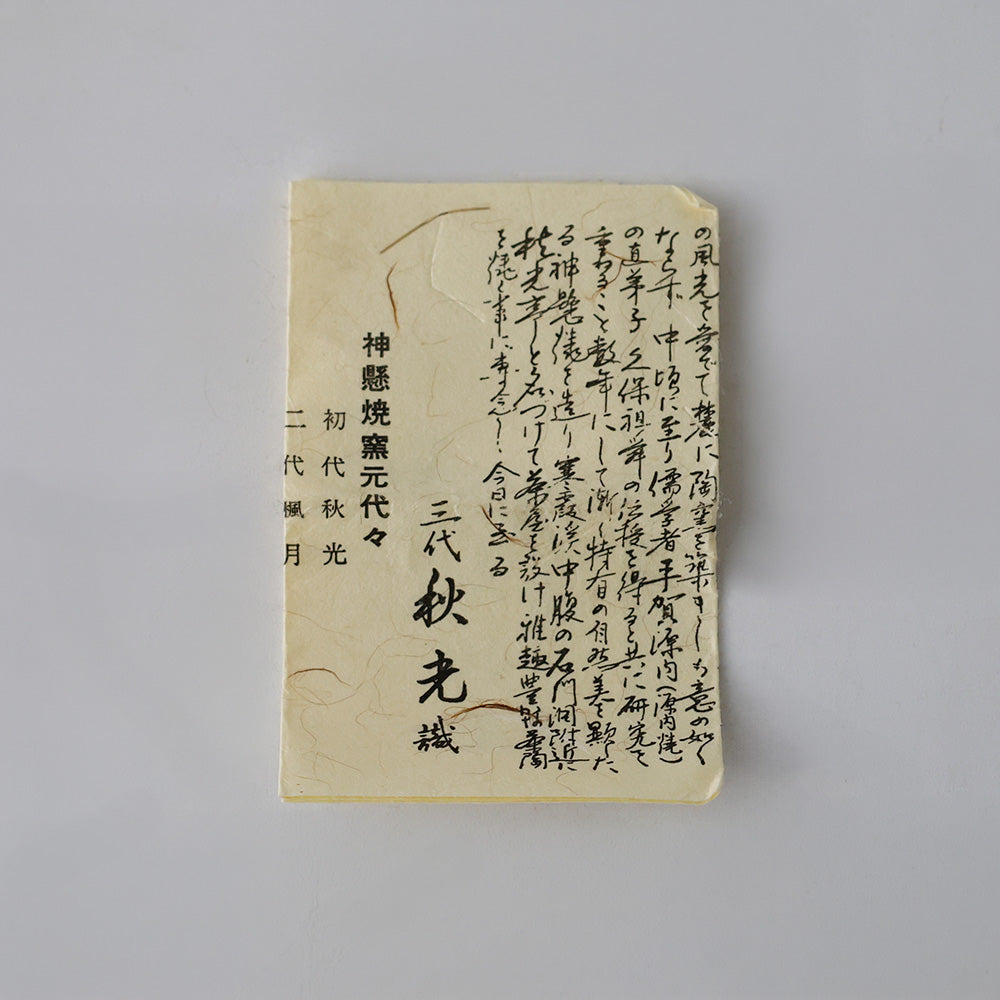 の風光を愛でて麓に陶窯を築きしも意の如く
ならず 中頃に至り儒学者平賀源内(源内焼)
の直弟子久保祖舜の伝授を得ると共に研究を
重ねること数年にして漸く特有の自然美を顕した
る神懸焼を造り寒霞渓中腹の石門洞附近に
秋光亭と名づけて茶屋を設け雅趣豊
を焼く事に専念し今日に至る
三代 秋光 識
神懸焼窯元代々
初代秋光
二代楓月